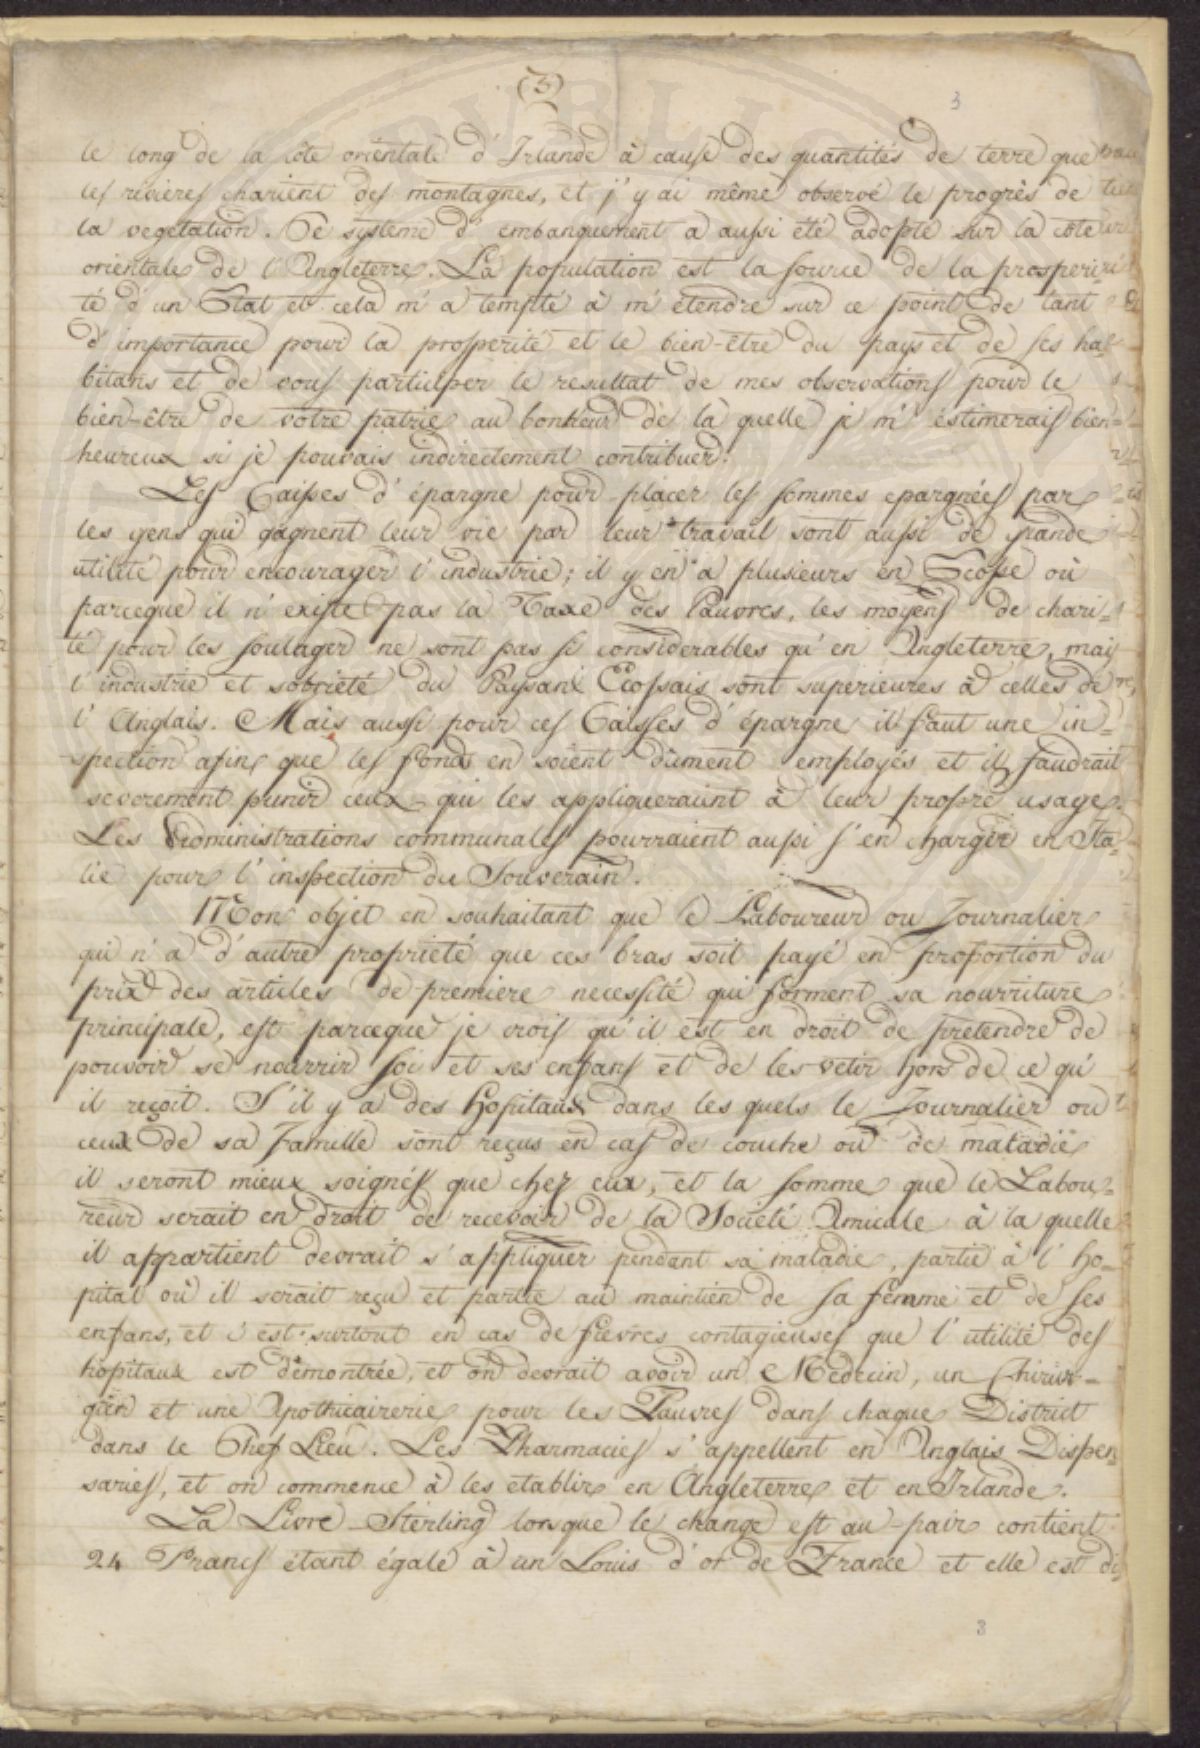 (3)
3
le long de la côte orientale d'Irlande à cause des quantités de terre que
les rivieres charient des montagnes, et j'y ai même observé le progrès de
la vegetation. Ce systeme d'embanquement a aussi été adopté sur la côte
orientale de l'Angleterre. La population est la source de la prosperi-
té d'un Etat et cela m'a tempté à m'étendre sur ce point de tant
d'importance pour la prosperité et le bien-être du pays et de ses ha-
bitans et de vous participer le resultat de mes observations pour le
bien-être de vôtre patrie au bonheur de la quelle je m'estimerais bien-
heureux si je pouvais indirectement contribuer.
Les Caisses d'épargne pour placer les sommes epargnées par
les gens qui gagnent leur vie par leur travail sont aussi de grande
utilité pour encourager l'industrie; il y en a plusieurs en Ecosse où
parceque il n'existe pas la Taxe des Pauvres, les moyens de chari-
té pour les soulager ne sont pas si considerables qu'en Angleterre, mais
l'industrie et sobriété du Paysan Ecossais sont superieures à celles de
l'Anglais. Mais aussi pour ces Caisses d'épargne il faut une in-
spection afin que les fonds en soient dûment employés et il faudrait
severement punir ceux qui les appliqueraient à leur propre usage.
Les Administrations communales pourraient aussi s'en charger en Ita-
lie pour l'inspection du Souverain.
Mon objet en souhaitant que le Laboureur ou Journalier
qui n'a d'autre proprieté que ces bras soit payé en proportion du
prix des articles de premiere necessité qui forment sa nourriture
principale, est parceque je crois qu'il est en droit de pretendre de
pouvoir se nourrir soi et ses enfans et de les vetir hors de ce qu'
il reçoit. S'il y a des Hopitaux dans les quels le Journalier ou
ceux de sa Famille sont reçus en cas de couche ou de maladie
il seront mieux soignés que chez eux, et la somme que le Labou-
reur serait en droit de recevoir de la Société Amicale à la quelle
il appartient devrait s'appliquer pendant sa maladie, partie à l'Ho-
pital où il serait reçu et partie au maintien de sa femme et de ses
enfans, et c'est surtout en cas de fievres contagieuses que l'utilité des
hopitaux est démontrée, et on devrait avoir un Medecin, un Chirur-
gien et une Apothicairerie pour les Pauvres dans chaque District
dans le Chef Lieu. Les Pharmacies s'appellent en Anglais Dispen
saries, et on commence à les etablir en Angleterre et en Irlande.
La Livre Sterling lorsque le change est au-pair contient
24 Francs étant égale à un Louis d'or de France et elle est di
3